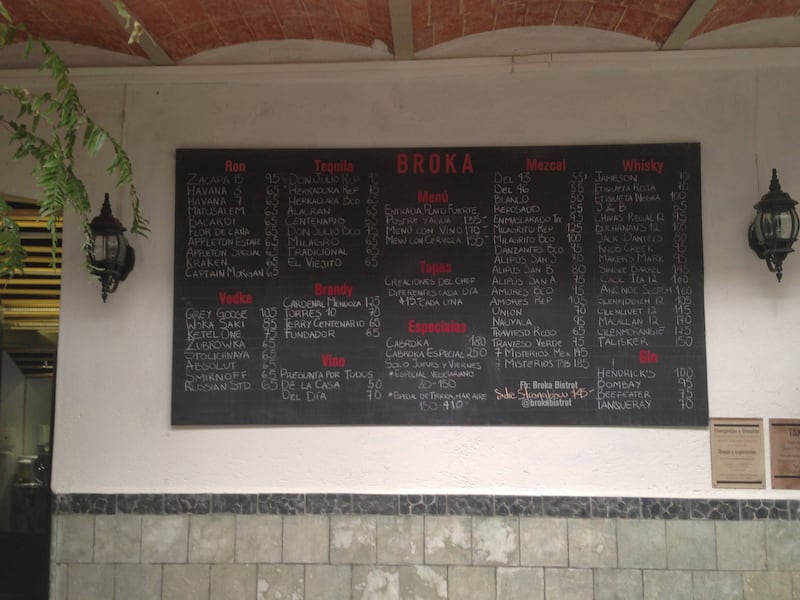 BROKA
Ron
ZACAPA 15 95
HAVANA 3 65
HAVANA 7 75
MATUSALEM 65
BACARDI 65
FLOR DE CAÑA 65
APPLETON ESTATE 65
APPLETON SPECIAL 65
KRAKEN 65
CAPTAIN MORGAN 65
Vodka
GREY GOOSE 105
WÓKA SAKI 95
KETEL ONE 75
ZUBROVKA
STOLICHNAYA 65
ABSOLUT 65
SMIRNOFF 65
RUSSIAN STD. 65
Tequila
DON JULIO REP
HERRADURA REP 75
HERRADURA BCO 65
ALACRAN 65
CENTENARIO 65
DON JULIO BCO 75
MILAGRO 65
TRADICIONAL 65
EL VIEJITO 65
Brandy
CARDENAL MENDOZA 125
TORRES 10 70
TERRY CENTENARIO 65
FUNDADOR 65
Vino
PREGUNTA POR TODOS
DE LA CASA 50
DEL DÍA 70
Menú
ENTRADA, PLATO FUERTE
POSTRE Y AGUA 135-
MENÚ CON VINO 170-
MENÚ CON CERVEZA 150-
Tapas
CREACIONES DEL CHEF
DIFERENTES CADA DÍA
$15- CADA UNA
Especiales
CABROKA 180
CABROKA ESPECIAL 250
SOLO JUEVES Y VIERNES
* ESPECIAL VEGETARIANO
80-150
* ESPECIAL DE TIERRA, MAR, AIRE
150-410
Mezcal
DEL 43 55
DEL 46 55
BLANCO 50
REPOSADO 65
ENMASCARADO 95
MILAGRITO REP 125
MILAGRITO BCO 100
DANZANTES BCO
ALIPUS SAN J 70
ALIPUS SAN B 80
ALIPUS SAN A 75
AMORES BCO
AMORES REP 105
UNION 70
NAUYACA 95
TRAVIESO ROJO 65
TRAVIESO VERDE 75
7 MISTERIOS MEX 145
7 MISTERIOS TOB 185
Fb: Broka Bistrot
Sidre Strongbow $45-
@brokabistrot
Whisky
JAMESON 70
ETIQUETA ROJA 70
ETIQUETA NEGRA 100
J & B
CHIVAS REGAL 12 95
BUCHANAN'S 12 95
JACK DANIELS 80
KNOB CREEK
MAKER'S MARK 95
SINGLE BARREL 145
CAOL ILA 12 160
GLENFIDDICH 12 105
GLENLIVET 12 115
MACALLAN 12 170
GLENMORANGIE 125
TALISKER 150
Gin
HENDRICK'S 100
BOMBAY 95
BEEFEATER 75
TANQUERAY 70